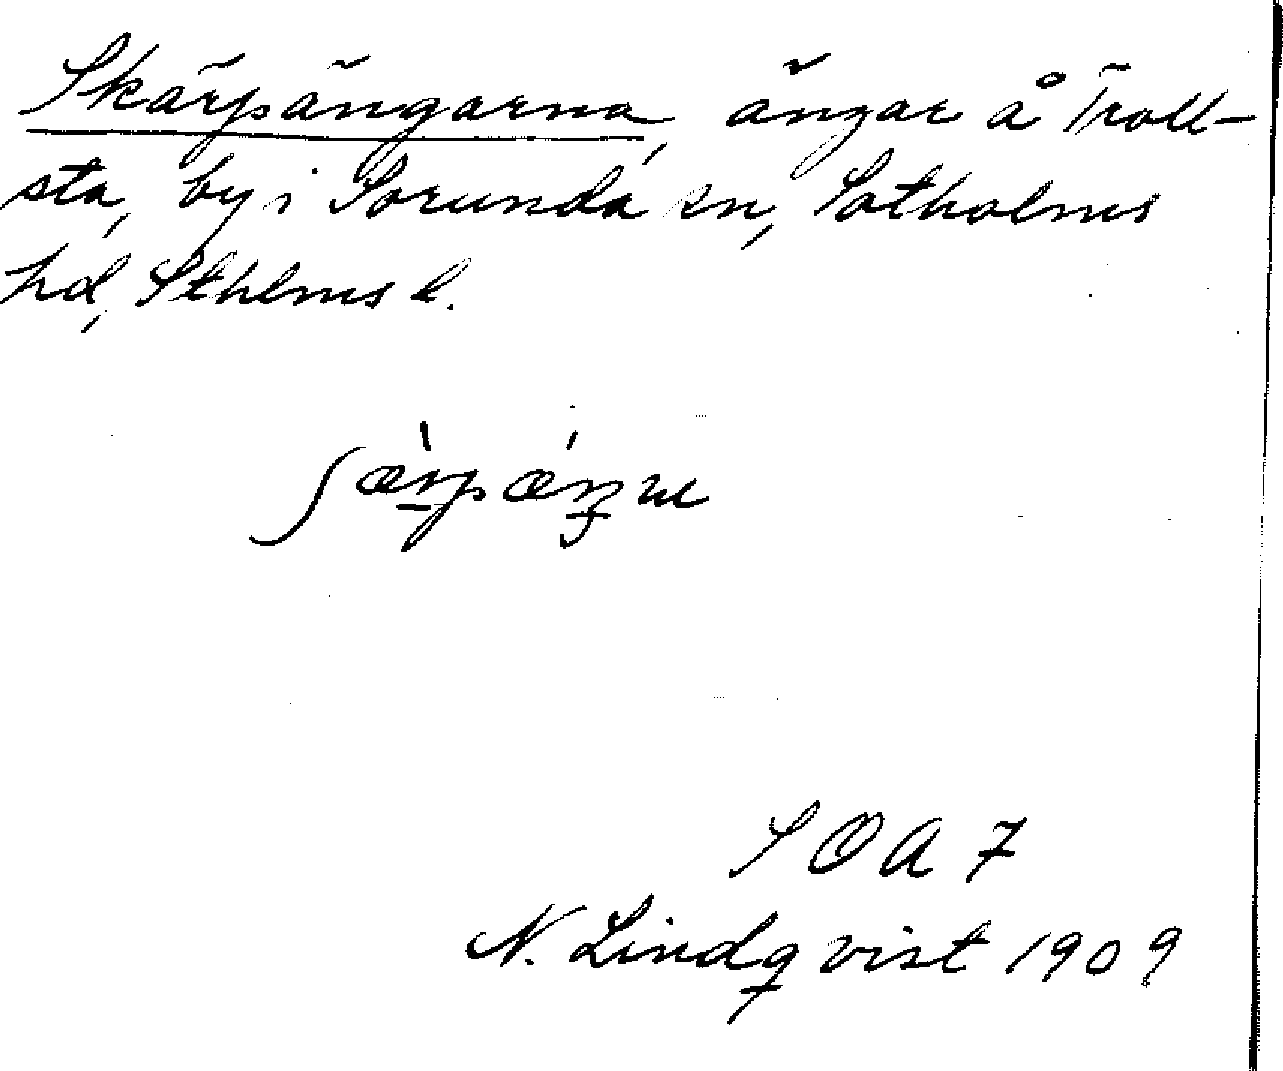 Skärpängarna, ängar å Troll-
sta, by i Sorunda sn, Sotholms
hd, Sthlms l.
SOA 7
N. Lindqvist 1909